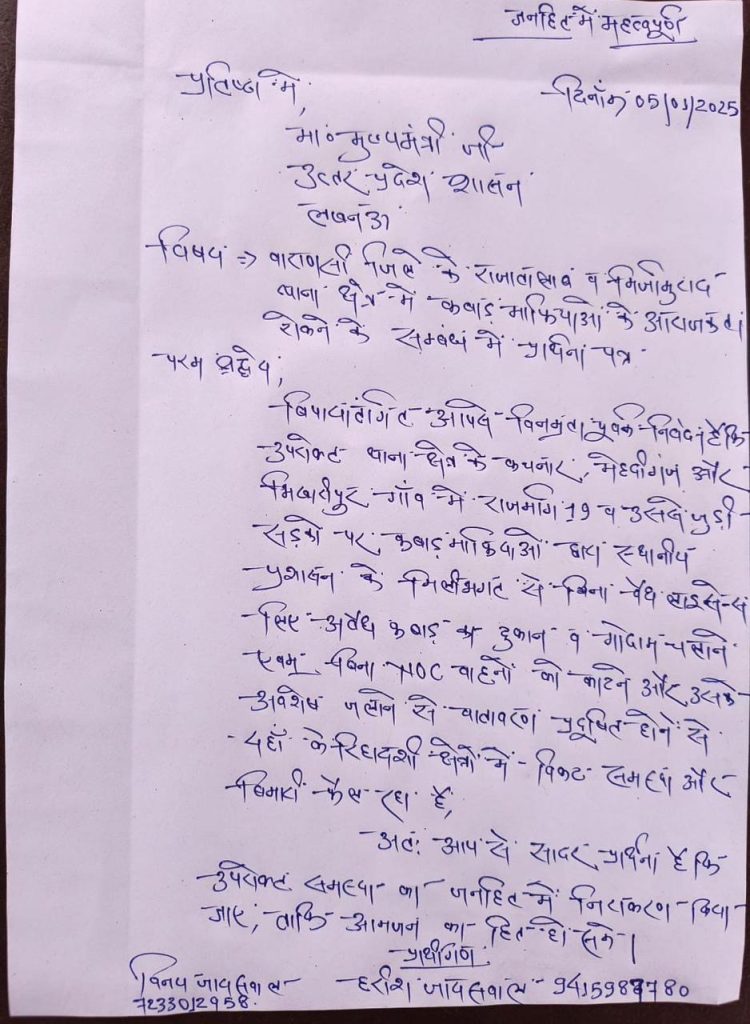 जनहित में महत्वपूर्ण
दिनाँक 05/01/2025
प्रतिष्ठा में,
मा० मुख्यमंत्री जी
उत्तर प्रदेश शासन
लखनऊ
विषय ⇒ वाराणसी जिले के राजातालाब व मिर्जामुराद
थाना क्षेत्र में कबाड़ माफियाओ के अराजकता
रोकने के सम्बंध में प्रार्थना पत्र
परम श्रद्धेय,
आपसे विनम्रता पूर्वक निवेदन है कि
उपरोक्त थाना क्षेत्र के कचनार, मेहदीगंज और
भिखारीपुर गाँव में राजमार्ग 19 व उससे जुड़ी
सड़को पर कबाड़ माफियाओ द्वारा स्थानीय
प्रशासन के मिलीभगत से बिना वैध लाइसेन्स
लिए अवैध कबाड़ का दुकान व गोदाम चलाने
एवम् बिना NOC वाहनों को काटने और उसके
अवशेष जलाने से वातावरण प्रदूषित होने से
यहाँ के रिहायशी क्षेत्रों में विकट समस्या और
बिमारी फैल रहा है,
अतः आप से सादर प्रार्थना है कि
उपरोक्त समस्या का जनहित में निराकरण किया
जाए, ताकि आमजन का हित हो सके।
प्रार्थीगण
विनय जायसवाल हरीश जायसवाल - 9415987780
7233012958.